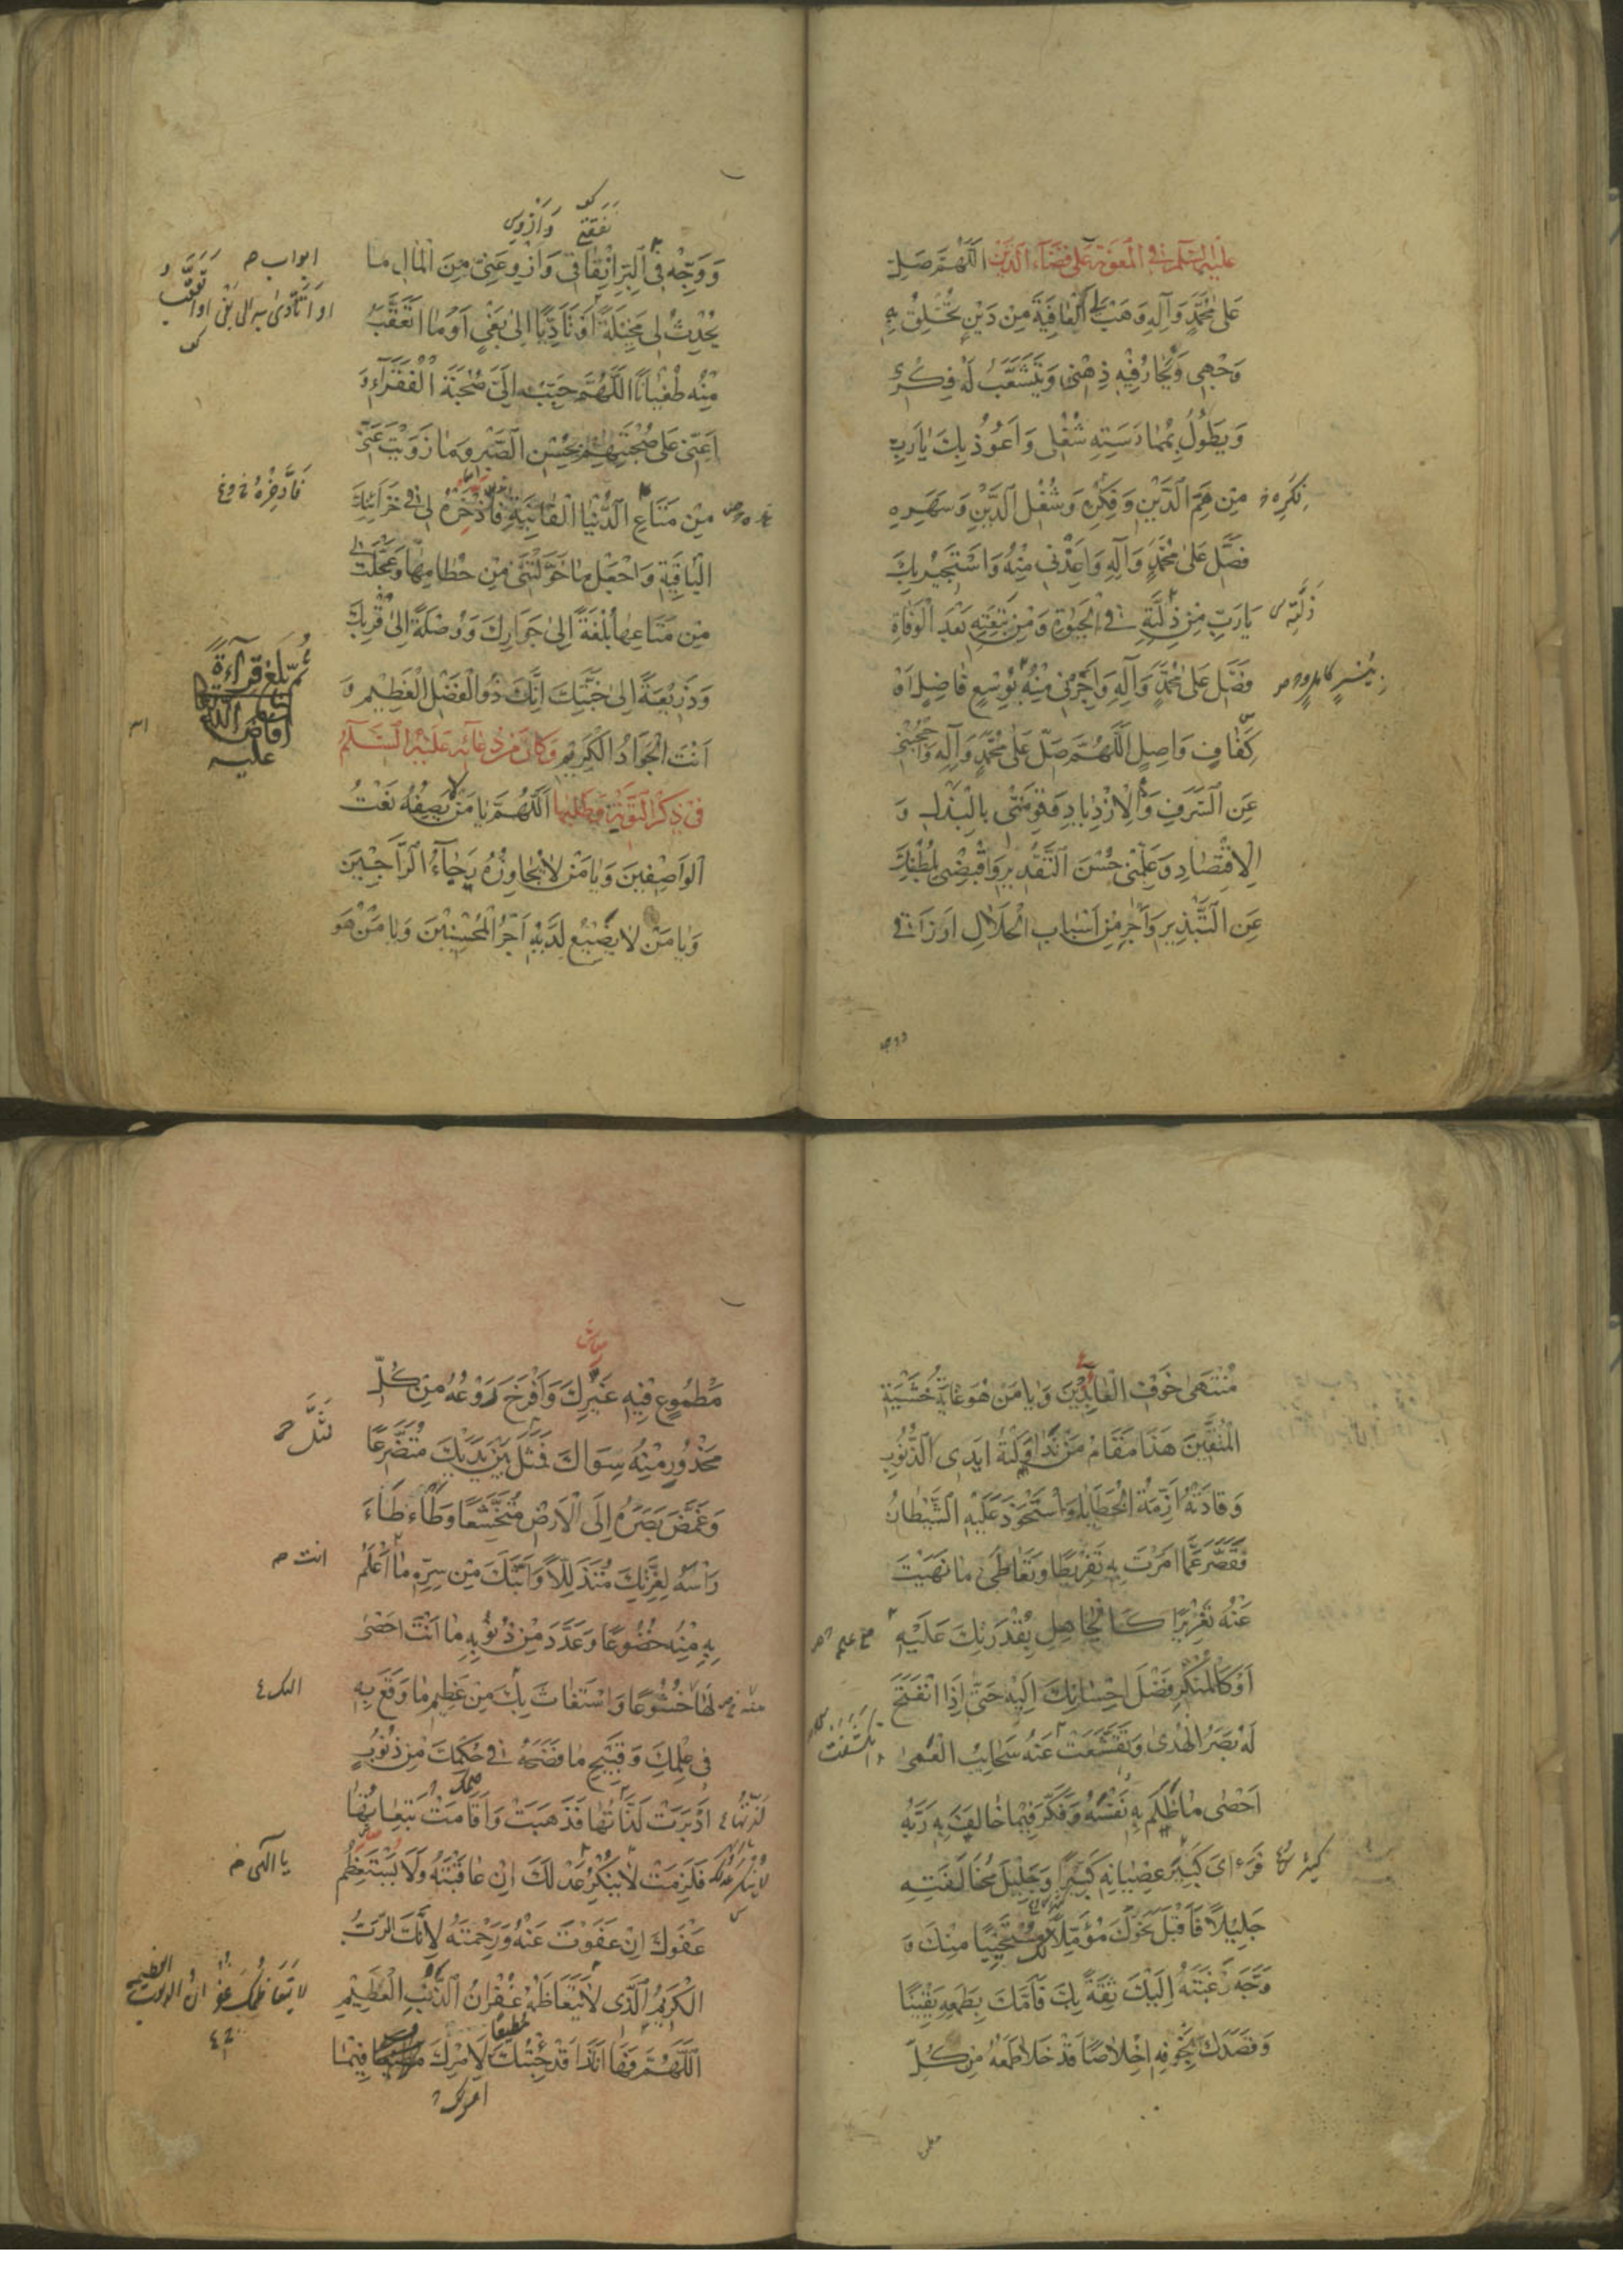 عليه السلام في المعونة على قضاء الدين اللهم صل
على محمد وآله وهب لي العافية من دين تخلق به
وجهي ويحار فيه ذهني ويتشعب له فكري
ويطول بممارسته شغلي واعوذ بك يا رب
من هم الدين وفكره وشغل الدين وسهره
فصل على محمد وآله واعذني منه واستجير بك
يا رب من ذلته في الحيوة ومن تبعته بعد الوفاة
فصل على محمد وآله واجرني منه بوسع فاضل او
كفاف واصل اللهم صل على محمد وآله واحجبني
عن السرف والازدياد وقومني بالبذل و
الاقتصاد وعلمني حسن التقدير واقبضني بلطفك
عن التبذير واجر من اسباب الحلال ارزاقي
فكره
ذلته
ووجه في البر انفاقي وازو عني من المال ما
يحدث لي مخيلة او تأديا الى بغي او ما اتعقب
منه طغيانا اللهم حبب الي صحبة الفقراء و
اعني على صحبتهم بحسن الصبر وما زويت عني
من متاع الدنيا الفانية فاذخره لي في خزائنك
الباقية واجعل ما خولتني من حطامها وعجلت لي
من متاعها بلغة الى جوارك ووصلة الى قربك
وذريعة الى جنتك انك ذو الفضل العظيم و
انت الجواد الكريم وكان من دعائه عليه السلام
في ذكر التوبة وطلبها اللهم يا من لا يصفه نعت
الواصفين ويا من لا يجاوزه رجاء الراجين
ويا من لا يضيع لديه اجر المحسنين ويا من هو
نفقتي
ابواب
فادخره
ثم بلغ قراءة
افاض الله
عليه
منتهى خوف العابدين ويا من هو غاية خشية
المتقين هذا مقام من تداولته ايدي الذنوب
وقادته ازمة الخطايا واستحوذ عليه الشيطان
فقصر عما امرت به تفريطا وتعاطى ما نهيت
عنه تغريرا كالجاهل بقدرتك عليه
او كالمنكر فضل احسانك اليه حتى اذا انفتح
له بصر الهدى وتقشعت عنه سحايب العمى
احصى ما ظلم به نفسه وفكر فيما خالف به ربه
فرأى كبير عصيانه كبيرا وجليل مخالفته
جليلا فاقبل نحوك مؤملا لك مستحييا منك و
وجه رغبته اليك ثقة بك فأمك بطمعه يقينا
وقصدك بخوفه اخلاصا قد خلا طمعه من كل
مطموع فيه غيرك وافرخ روعه من كل
محذور منه سواك فمثل بين يديك متضرعا
وغمض بصره الى الارض متخشعا وطأطأ
رأسه لعزتك متذللا وابثك من سره ما اعلم
به منه خضوعا وعدد من ذنوبه ما انت احصى
لها خشوعا واستغاث بك من عظيم ما وقع به
في علمك وقبيح ما فضحه في حكمك من ذنوب
ادبرت لذاتها فذهبت واقامت تبعاتها
فلزمت لا ينكر عدلك ان عاقبته ولا يستعظم
عفوك ان عفوت عنه ورحمته لانك الرب
الكريم الذي لا يتعاظمه غفران الذنب العظيم
اللهم فها انا ذا قد جئتك لامرك مطيعا فيما
انت
يا الهي
امرك